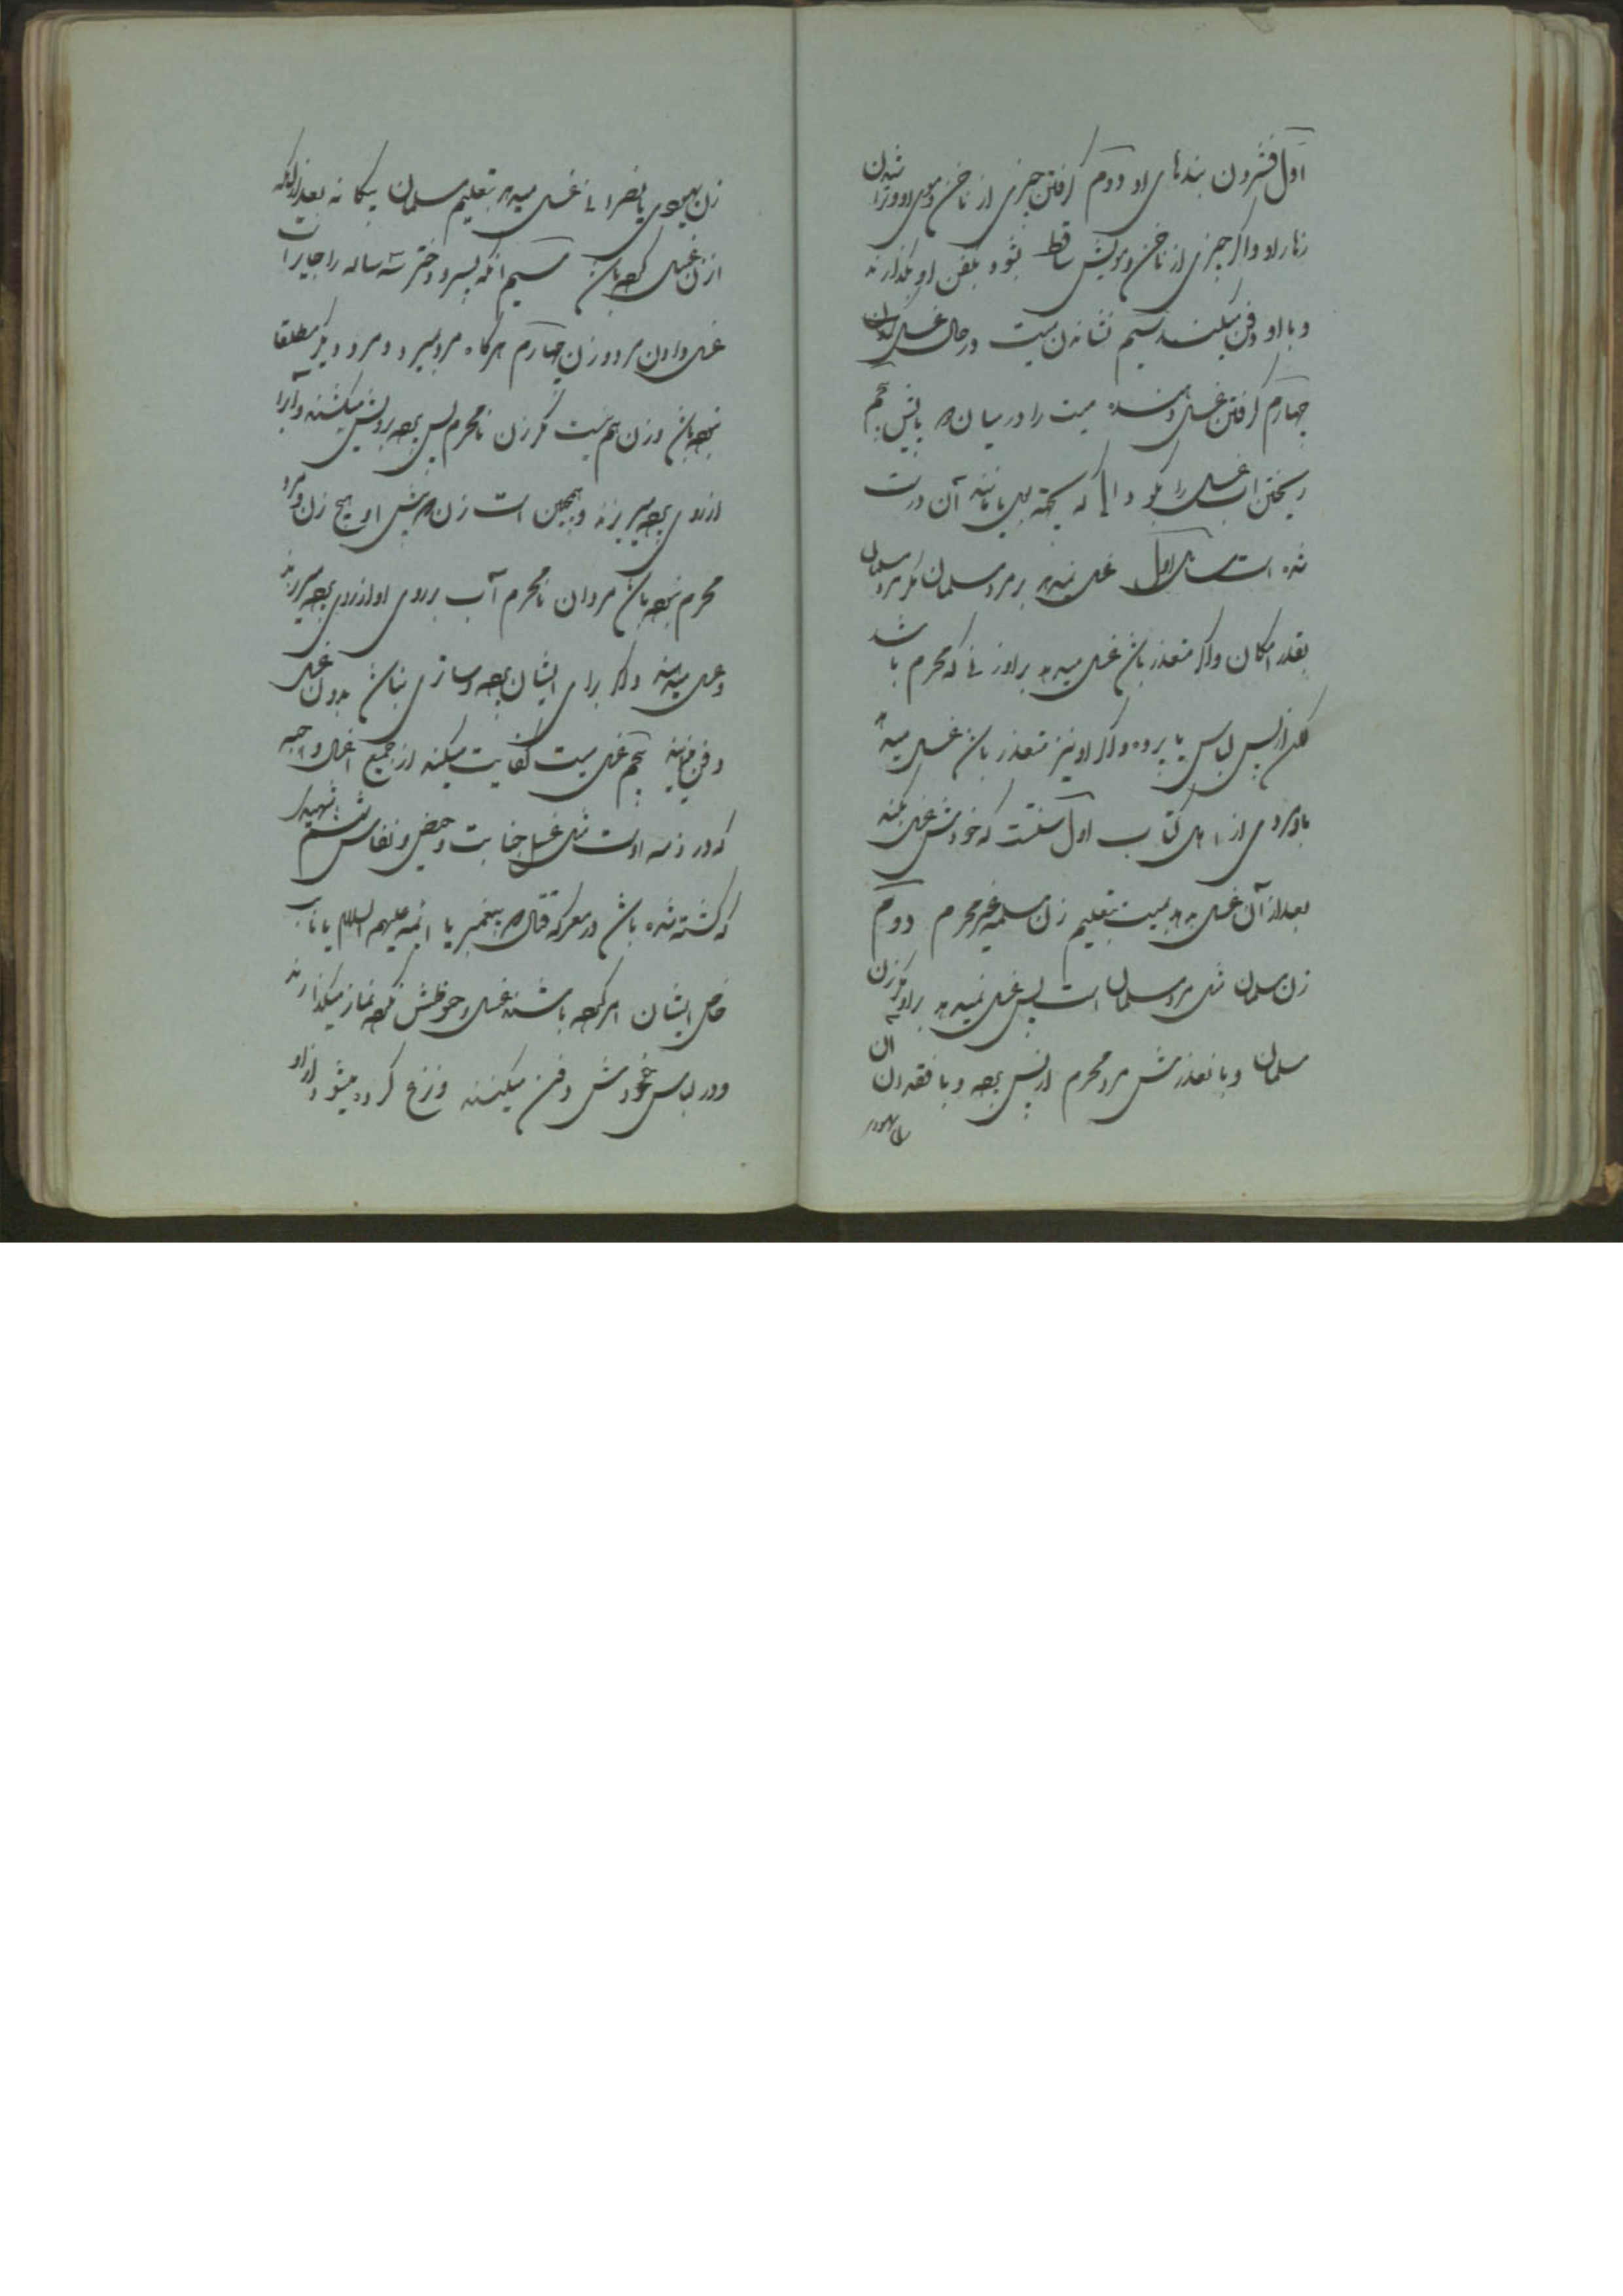 اول فشردن بندهای او دوم گرفتن چیزی از ناخن و موی او و تراشیدن
زهار او و اگر چیزی از ناخن و مویش ساقط بشود بکفن او بگذارند
و با او دفن میکنند سیم نشاندن میت در حال غسل
چهارم گرفتن غسل دهنده میت را در میان دو پایش پنجم
ریختن آب غسل را بگودالی که بجهة بول یا مانند آن درست
شده است مسائل اول غسل نمیدهد بر مرد مسلمان مگر مرد مسلمان
بقدر امکان و اگر متعذر باشد غسل میدهد بر او زنی که محرم باشد
لکن از پس لباس یا پرده و اگر او نیز متعذر باشد غسل میدهد
باو مردی از اهل کتاب اول سنتست که خودش غسل بکند
بعد از آن غسل بدهد بمیت بتعلیم زن مسلمه غیر محرم دوم
زن مسلمان مثل مرد مسلمان است پس غسل نمیدهد بر او مگر زن
مسلمان و با تعذرش مرد محرم از پس پرچه و با فقدان آن
زن یهودی یا نصرانی غسل میدهد بتعلیم مسلمان بیگانه بعد از آنکه
آن زن غسل کرده باشد سیم آنکه پسر و دختر سه ساله را جایز است
غسل دادن مرد و زن چهارم هر گاه مرد بمیرد و مرد دیگر مطلقا
نبوده باشد و زن هم نیست مگر زن نامحرم پس پرچه برویش میکشند و آب را
از روی پرچه میریزند و همچنین است زن که پیش او هیچ زن و مرد
محرم نبوده باشد مردان نامحرم آب بر روی او از روی پرچه میریزند
و غسل میدهند و اگر برای ایشان پرچه و ساتری نباشد بدون غسل
دفن نمایند پنجم غسل میت کفایت میکند از جمیع اغسال واجبه
که در ذمه اوست مثل غسل جنابت و حیض و نفاس ششم شهید
که کشته شده باشد در معرکه قتال که پیغمبر یا ائمه علیهم السلام یا نایب
خاص ایشان امر کرده باشند غسل و حنوطش نکرده نماز میگذارند
و در لباس خودش دفن میکنند و نزع کرده میشود از او